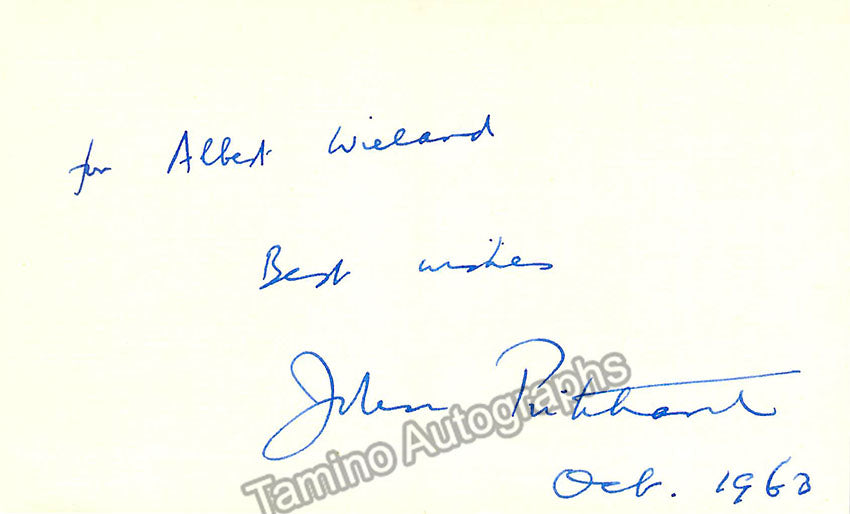 for Albert Wieland
Best wishes
John Pritchard
Tamino Autographs
Oct. 1963